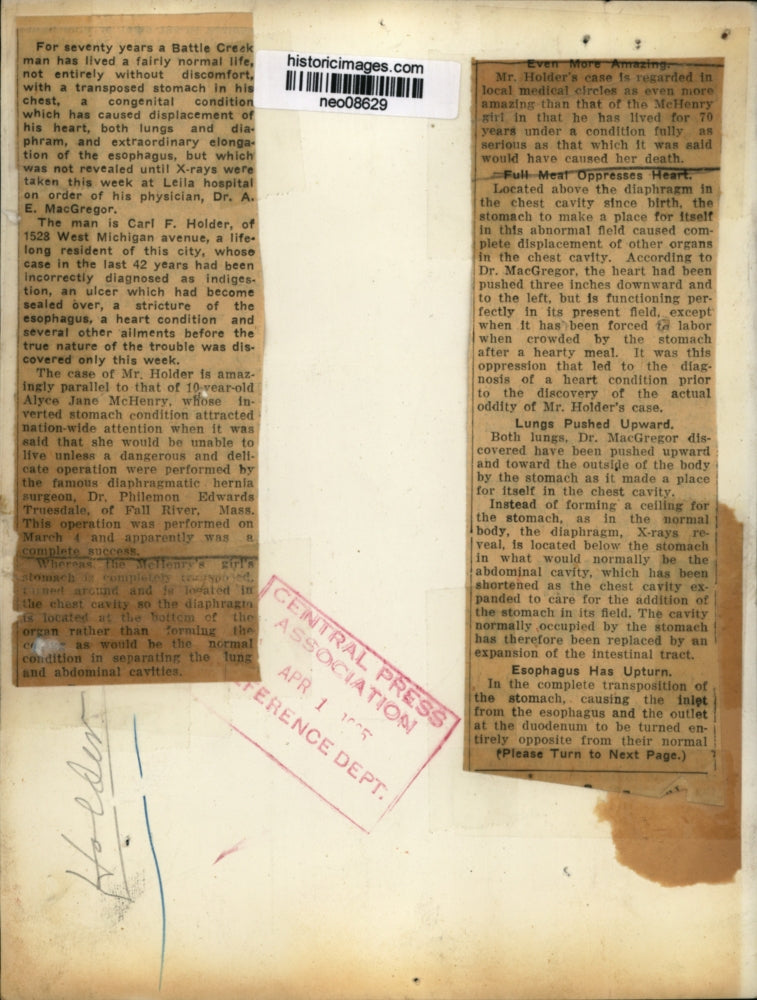 For seventy years a Battle Creek
man has lived a fairly normal life,
not entirely without discomfort,
with a transposed stomach in his
chest, a congenital condition
which has caused displacement of
his heart, both lungs and dia-
phram, and extraordinary elonga-
tion of the esophagus, but which
was not revealed until X-rays were
taken this week at Leila hospital
on order of his physician, Dr. A.
E. MacGregor.
The man is Carl F. Holder, of
1528 West Michigan avenue, a life-
long resident of this city, whose
case in the last 42 years had been
incorrectly diagnosed as indiges-
tion, an ulcer which had become
sealed over, a stricture of the
esophagus, a heart condition and
several other ailments before the
true nature of the trouble was dis-
covered only this week.
The case of Mr. Holder is amaz-
ingly parallel to that of 10-year-old
Alyce Jane McHenry, whose in-
verted stomach condition attracted
nation-wide attention when it was
said that she would be unable to
live unless a dangerous and deli-
cate operation were performed by
the famous diaphragmatic hernia
surgeon, Dr. Philemon Edwards
Truesdale, of Fall River, Mass.
This operation was performed on
March 4 and apparently was a
complete success.
Whereas the McHenry's girl's
stomach is completely transposed,
turned around and is located in
the chest cavity so the diaphragm
is located at the bottom of the
organ rather than forming the
as would be the normal
condition in separating the lung
and abdominal cavities.
historicimages.com
neo08629
Even More Amazing.
Mr. Holder's case is regarded in
local medical circles as even more
amazing than that of the McHenry
girl in that he has lived for 70
years under a condition fully as
serious as that which it was said
would have caused her death.
Full Meal Oppresses Heart.
Located above the diaphragm in
the chest cavity since birth, the
stomach to make a place for itself
in this abnormal field caused com-
plete displacement of other organs
in the chest cavity. According to
Dr. MacGregor, the heart had been
pushed three inches downward and
to the left, but is functioning per-
fectly in its present field, except
when it has been forced to labor
when crowded by the stomach
after a hearty meal. It was this
oppression that led to the diag-
nosis of a heart condition prior
to the discovery of the actual
oddity of Mr. Holder's case.
Lungs Pushed Upward.
Both lungs, Dr. MacGregor dis-
covered have been pushed upward
and toward the outside of the body
by the stomach as it made a place
for itself in the chest cavity.
Instead of forming a ceiling for
the stomach, as in the normal
body, the diaphragm, X-rays re-
veal, is located below the stomach
in what would normally be the
abdominal cavity, which has been
shortened as the chest cavity ex-
panded to care for the addition of
the stomach in its field. The cavity
normally occupied by the stomach
has therefore been replaced by an
expansion of the intestinal tract.
Esophagus Has Upturn.
In the complete transposition of
the stomach, causing the inlet
from the esophagus and the outlet
at the duodenum to be turned en-
tirely opposite from their normal
(Please Turn to Next Page.)
CENTRAL PRESS
ASSOCIATION
APR 1
REFERENCE DEPT.
Holder